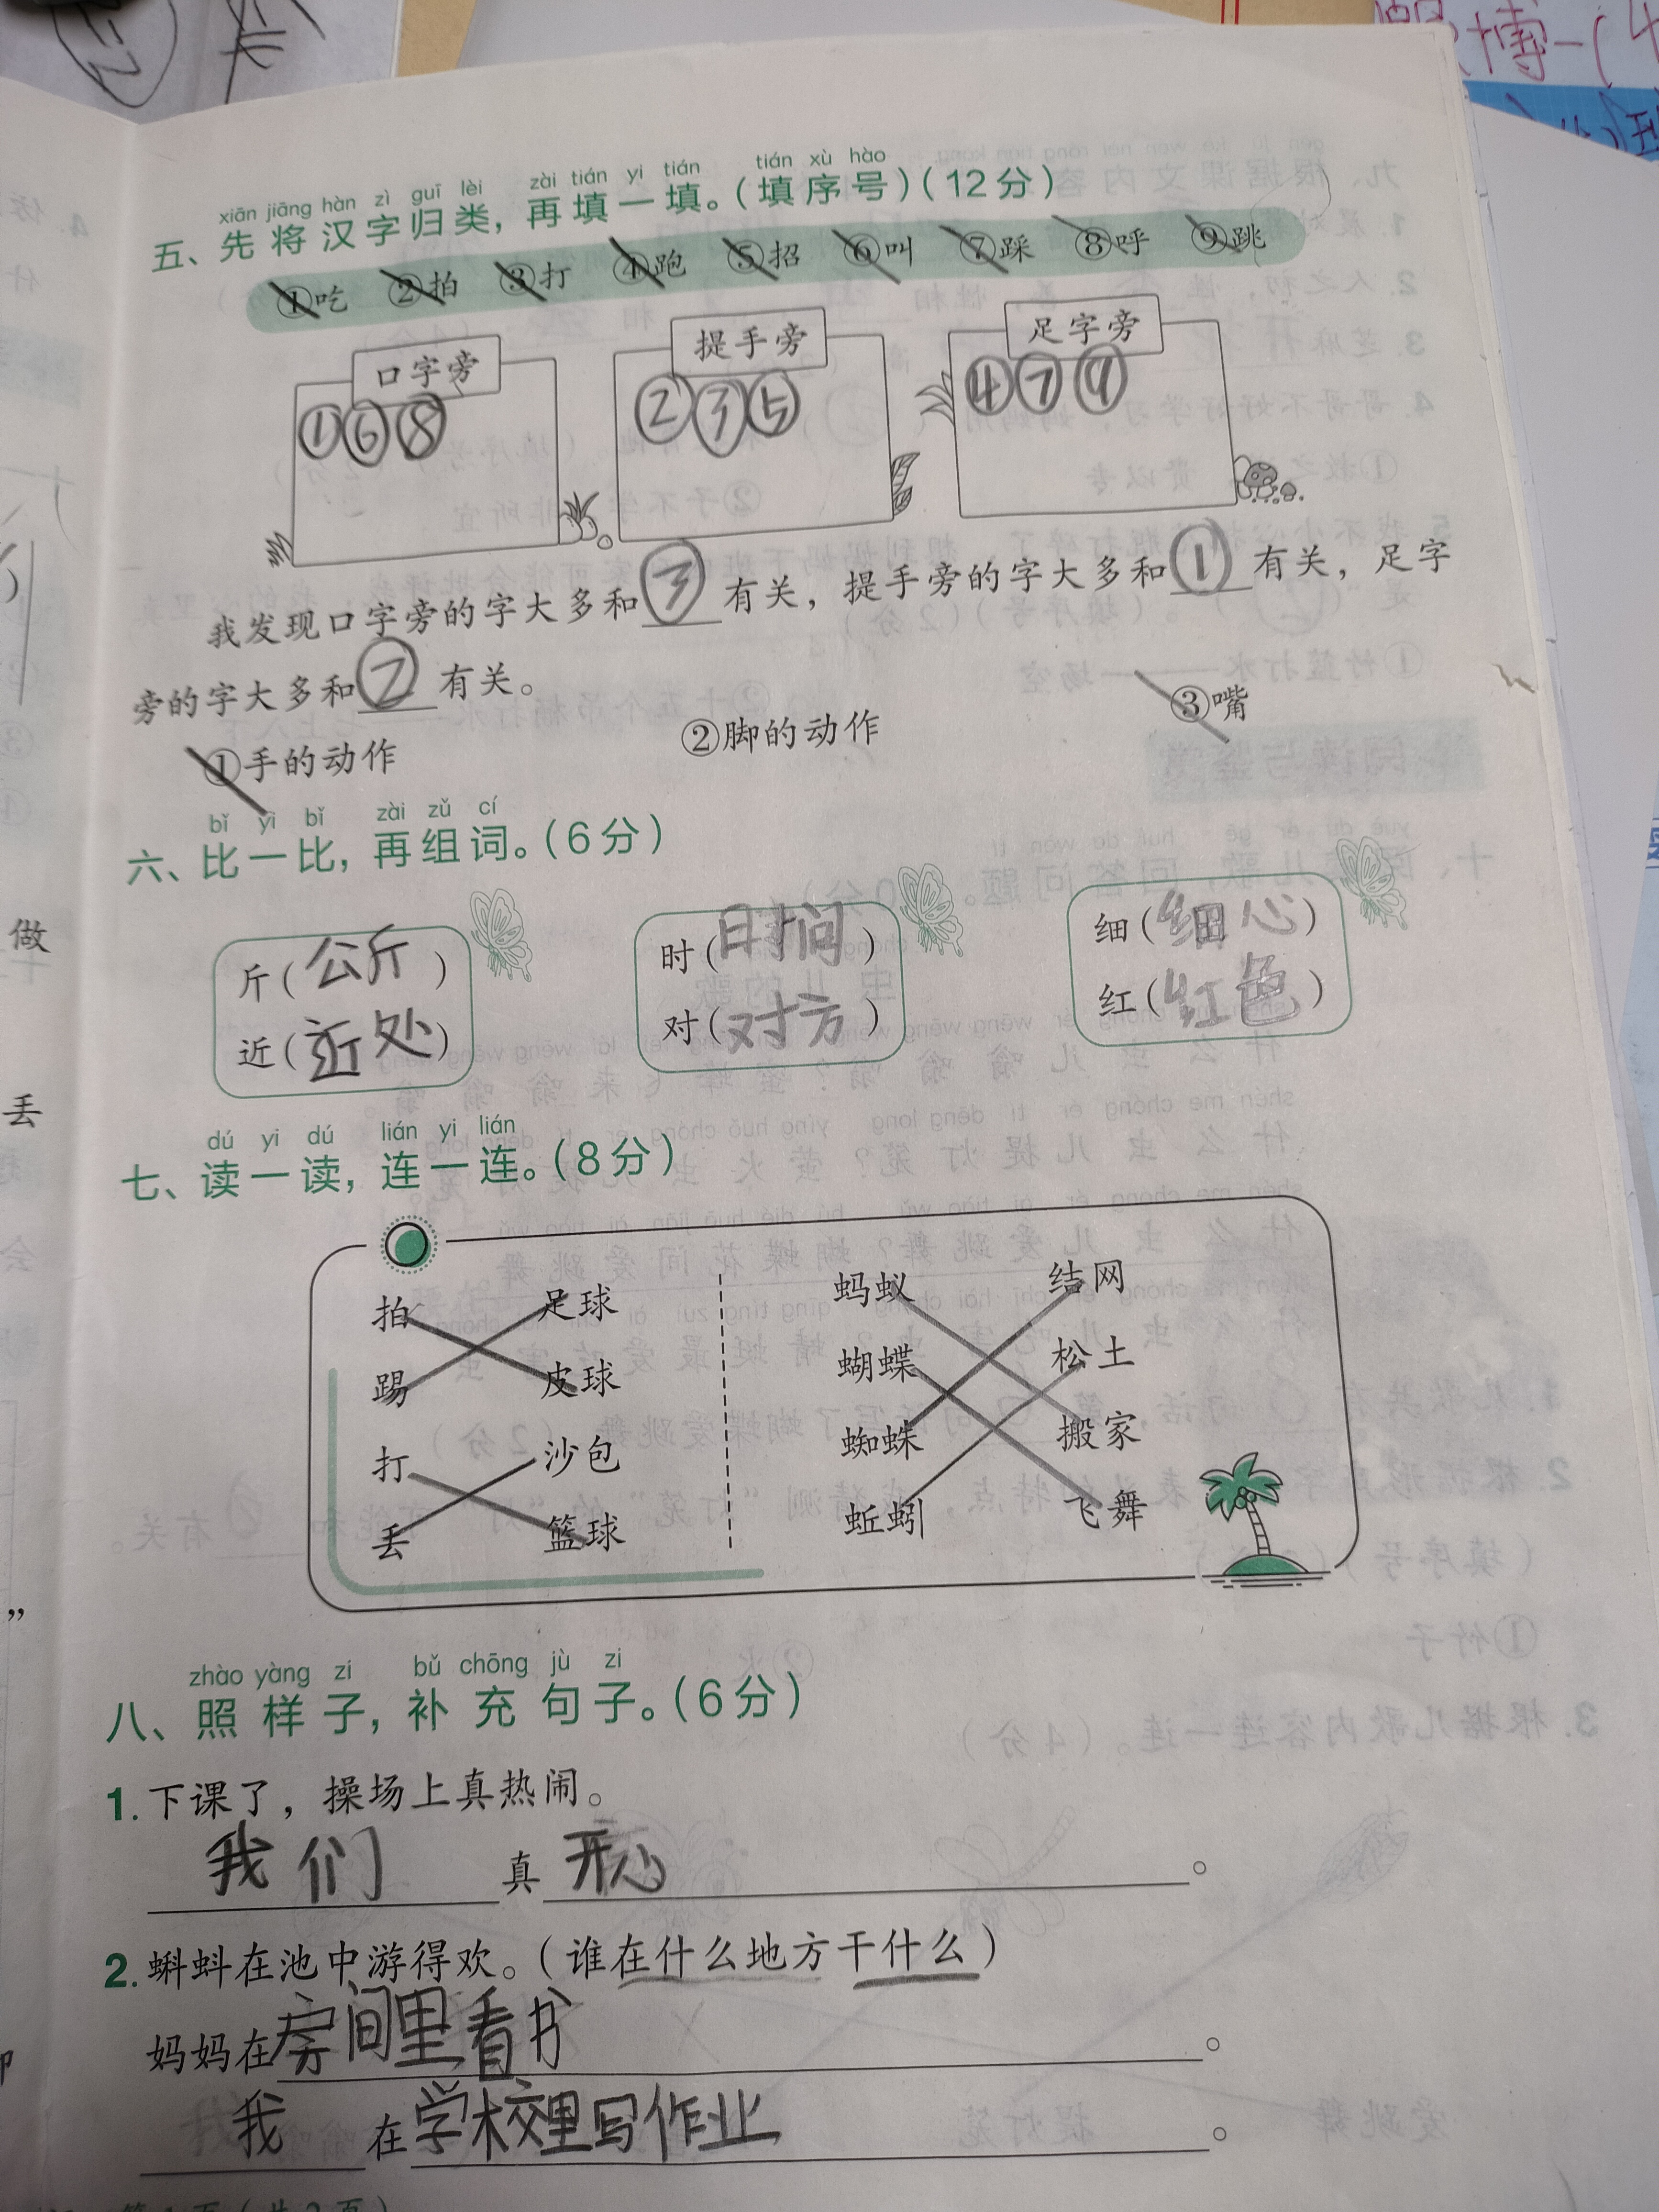 xiān jiāng hàn zì guī lèi zài tián yi tián tián xù hào
五、先将汉字归类，再填一填。（填序号）（12分）
①吃 ②拍 ③打 ④跑 ⑤招 ⑥叫 ⑦踩 ⑧呼 ⑨跳
口字旁 提手旁 足字旁
①⑥⑧ ②③⑤ ④⑦⑨
我发现口字旁的字大多和③有关，提手旁的字大多和①有关，足字
旁的字大多和②有关。
①手的动作 ②脚的动作 ③嘴
bǐ yi bǐ zài zǔ cí
六、比一比，再组词。（6分）
斤（公斤） 时（时间） 细（细心）
近（近处） 对（对方） 红（红色）
dú yi dú lián yi lián
七、读一读，连一连。（8分）
拍 足球 蚂蚁 结网
踢 皮球 蝴蝶 松土
打 沙包 蜘蛛 搬家
丢 篮球 蚯蚓 飞舞
zhào yàng zi bǔ chōng jù zi
八、照样子，补充句子。（6分）
1. 下课了，操场上真热闹。
我们真开心。
2. 蝌蚪在池中游得欢。（谁在什么地方干什么）
妈妈在房间里看书。
我在学校里写作业。
做
丢
会
”
博一（4